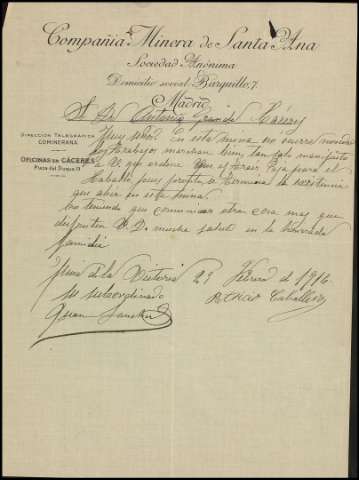 Compañía Minera de Santa Ana
Sociedad Anónima
Domicilio social: Barquillo, 7.
Madrid
Sr Dn Antonio
DIRECCIÓN TELEGRÁFICA
COMINERANA
OFICINAS EN CÁCERES
Muy señor: En esta mina no ocurre
los trabajos marchan bien, tan solo manifiesto
a V. que ordene que al traer Paja para el
Caballo pues pronto se termina la existencia
que abia en esta mina.
No teniendo que comunicar otra cosa mas que
disfruten V. D. mucha salud en la honrada
familia
Mina de la Victoria 23 Febrero de 1916
su subordinado
Juan Sanchez
Patricio Caballero